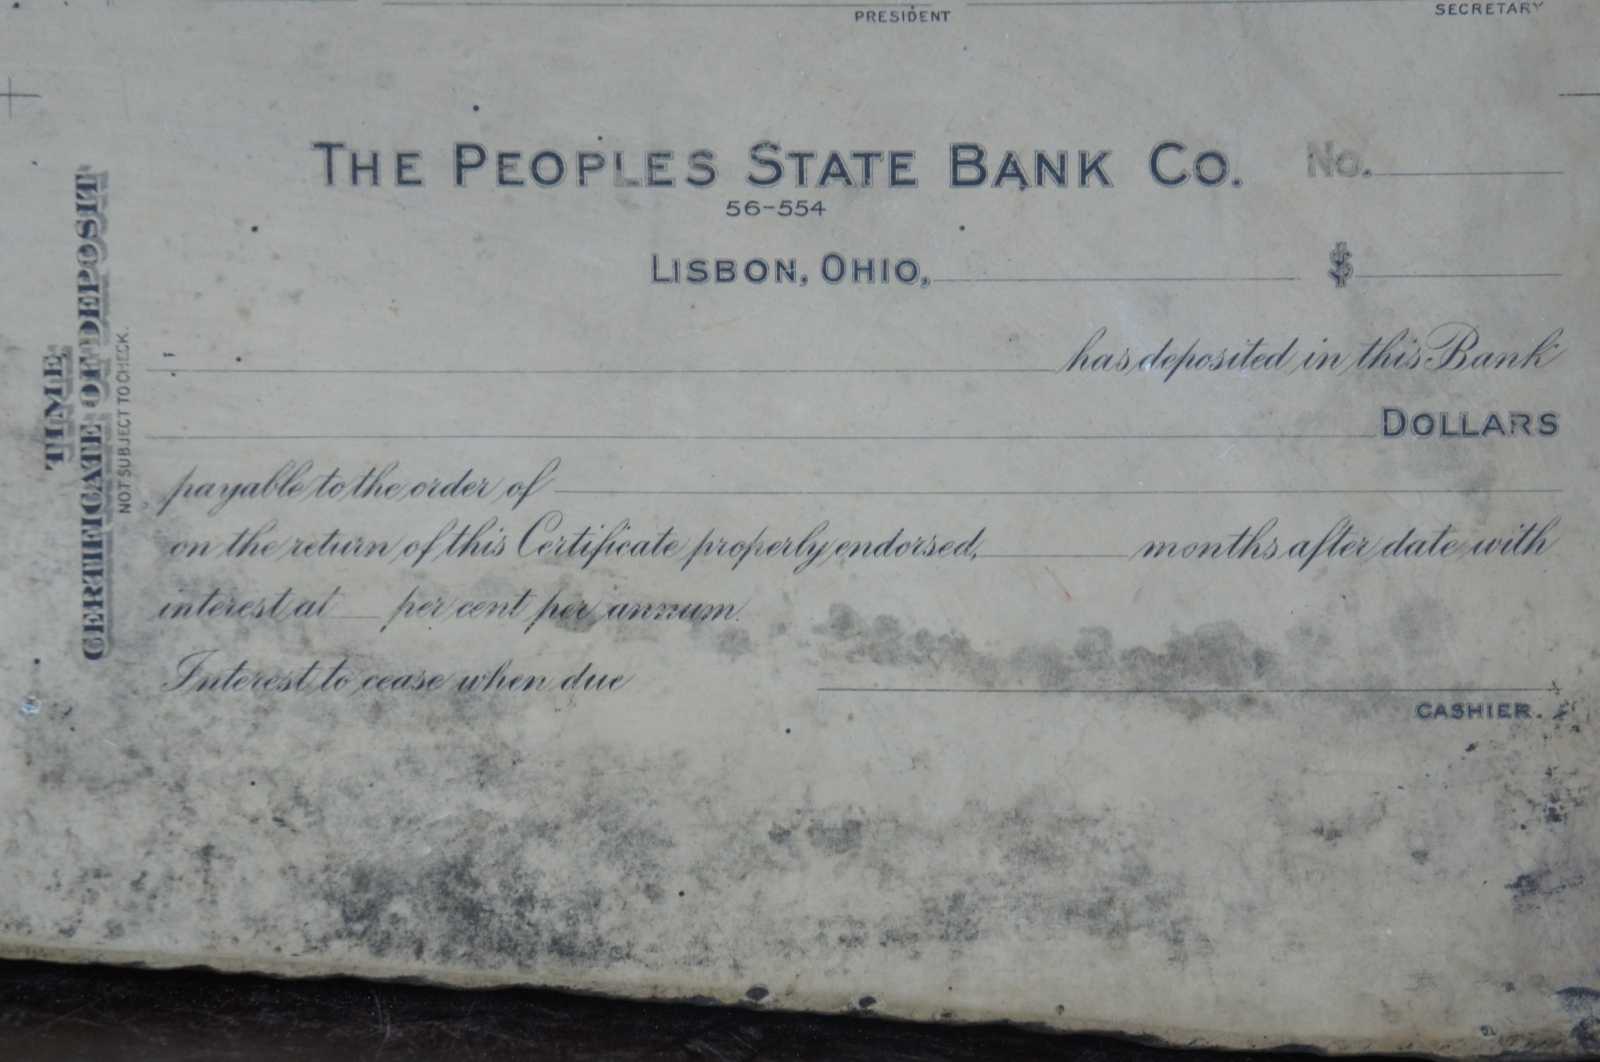 PRESIDENT SECRETARY
THE PEOPLES STATE BANK CO. No.
56-554
LISBON, OHIO, $
has deposited in this Bank
DOLLARS
payable to the order of
on the return of this Certificate properly endorsed, months after date with
interest at per cent per annum.
Interest to cease when due
CASHIER.
TIME
CERTIFICATE OF DEPOSIT
NOT SUBJECT TO CHECK.